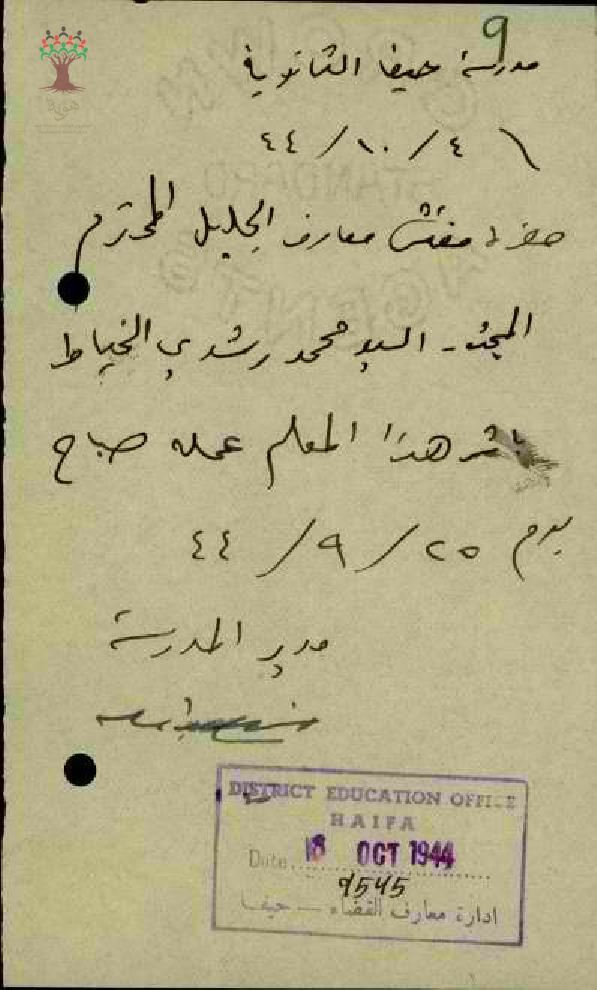 9
مدرسة حيفا الثانوية
٤ / ١٠ / ٤٤
حضرة مفتش معارف الجليل المحترم
المبحث - السيد محمد رشدي الخياط
باشر هذا المعلم عمله صباح
يوم ٢٥ / ٩ / ٤٤
مدير المدرسة
DISTRICT EDUCATION OFFICE
HAIFA
Date 18 OCT 1944
9545
ادارة معارف القضاء — حيفا
هوية